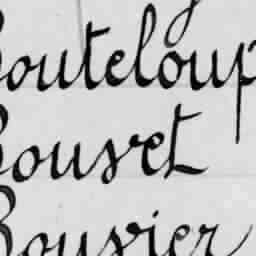 Bouteloup
Bouvet
Bouvier